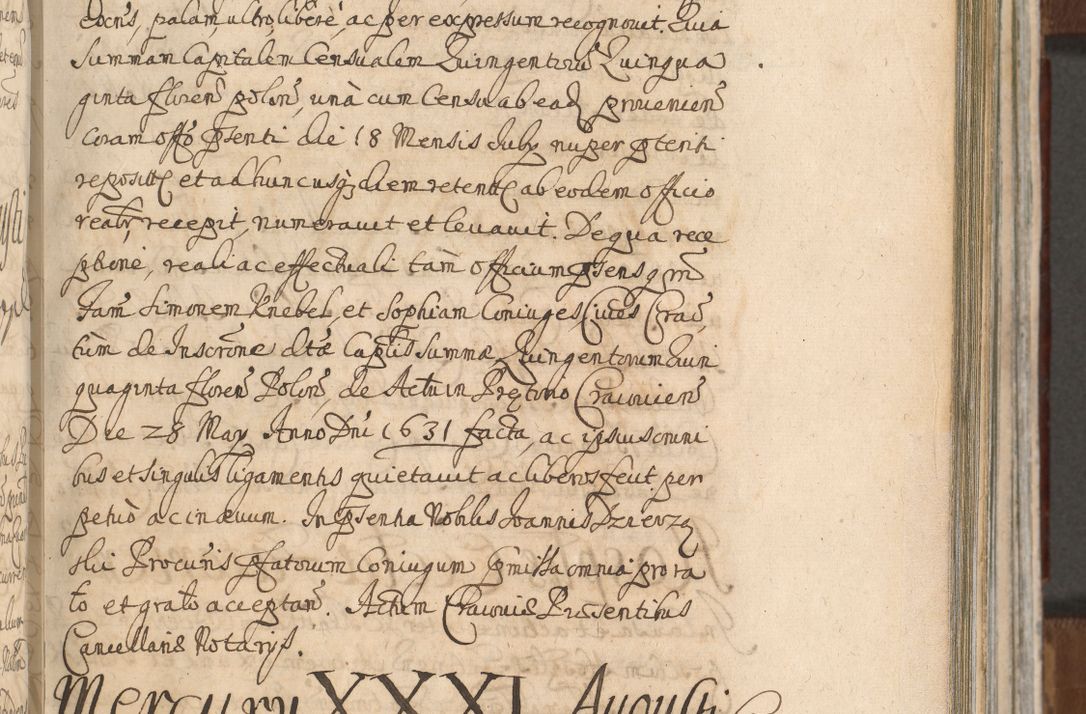 palam, ultro, libere, ac per expressum recognovit. Quia
Summam Capitalem Censualem Quingentorũ Quinqua
ginta floreñ poloñ, unà cum Censu ab ead provenieñ
coram offõ pñti die 18 Mensis July nuper pteriti
reposit et ad huncusq diem retent ab eodem officio
realr recepit, numeravit et levavit. De qua rece
ptione, reali ac effectuali tam officium pñens q
fam Simonem Knebel, et Sophiam Coniuges Cives Crac,
tum de Inscrõne dtæ Captlis summæ Quingentorum Quin
quaginta floreñ Poloñ, de Actu in Prætorio Cracovieñ
Die 28 May Anno Dñi 1631 facta, ac ipsius omni
bus et singulis ligamentis quietavit ac liberos fecit per
petuò ac in ævum. In pñentia Nobilis Joannis Dzierzą
ski Procuris pfatorum Coniugum pmissa omnia pro ra
to et grato acceptañ. Actum Cracoviæ Præsentibus
Cancellariæ Notarijs.
Mercurij XXXI Augusti